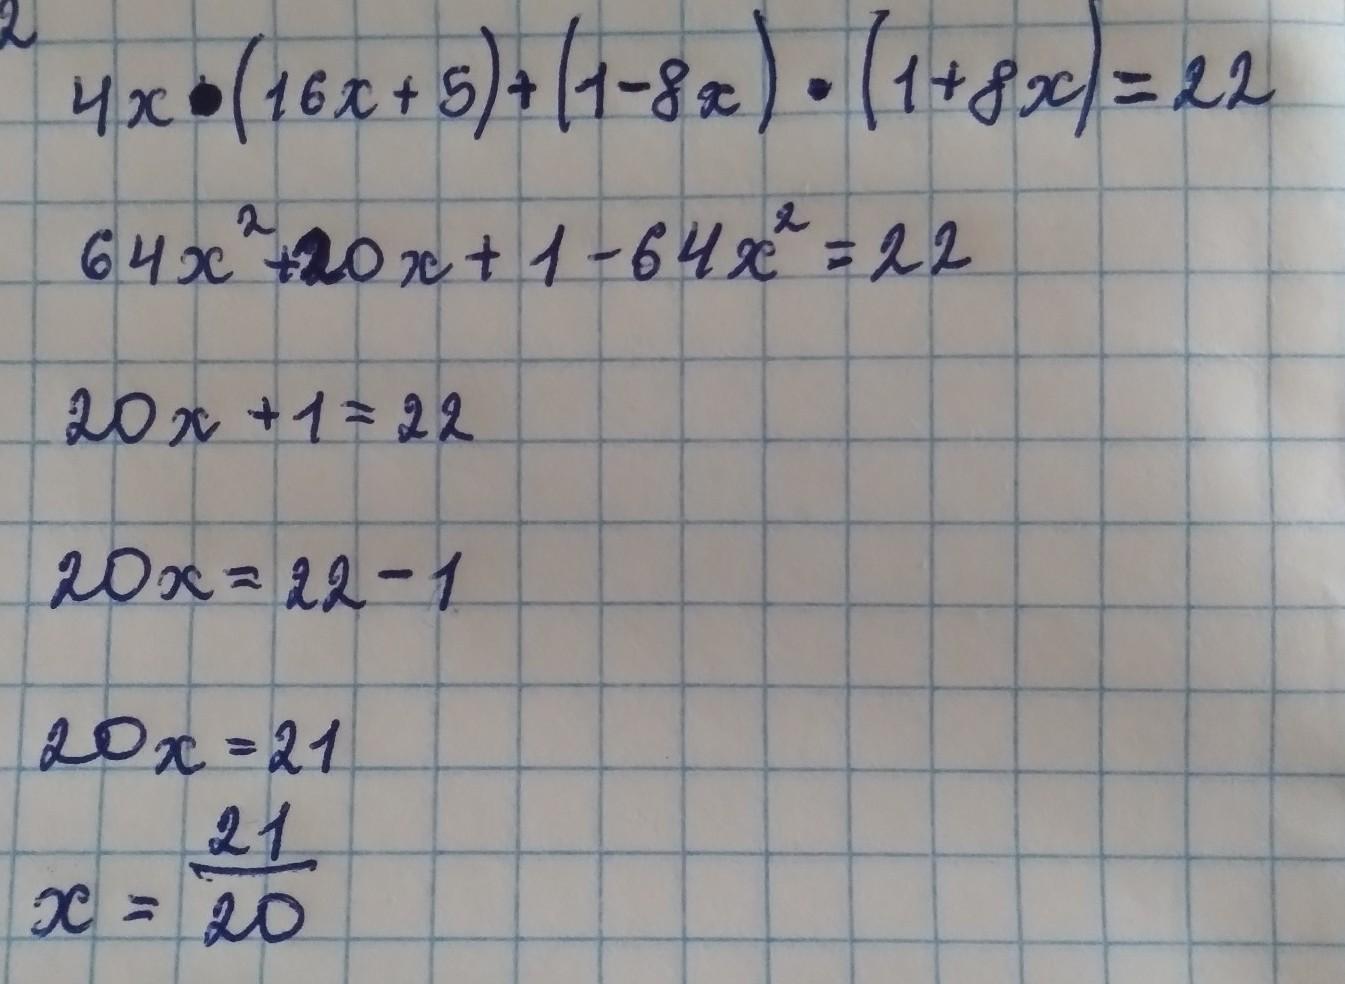 2
4x•(16x+5)+(1-8x)•(1+8x)=22
64x²+20x+1-64x²=22
20x+1=22
20x=22-1
20x=21
x=21/20